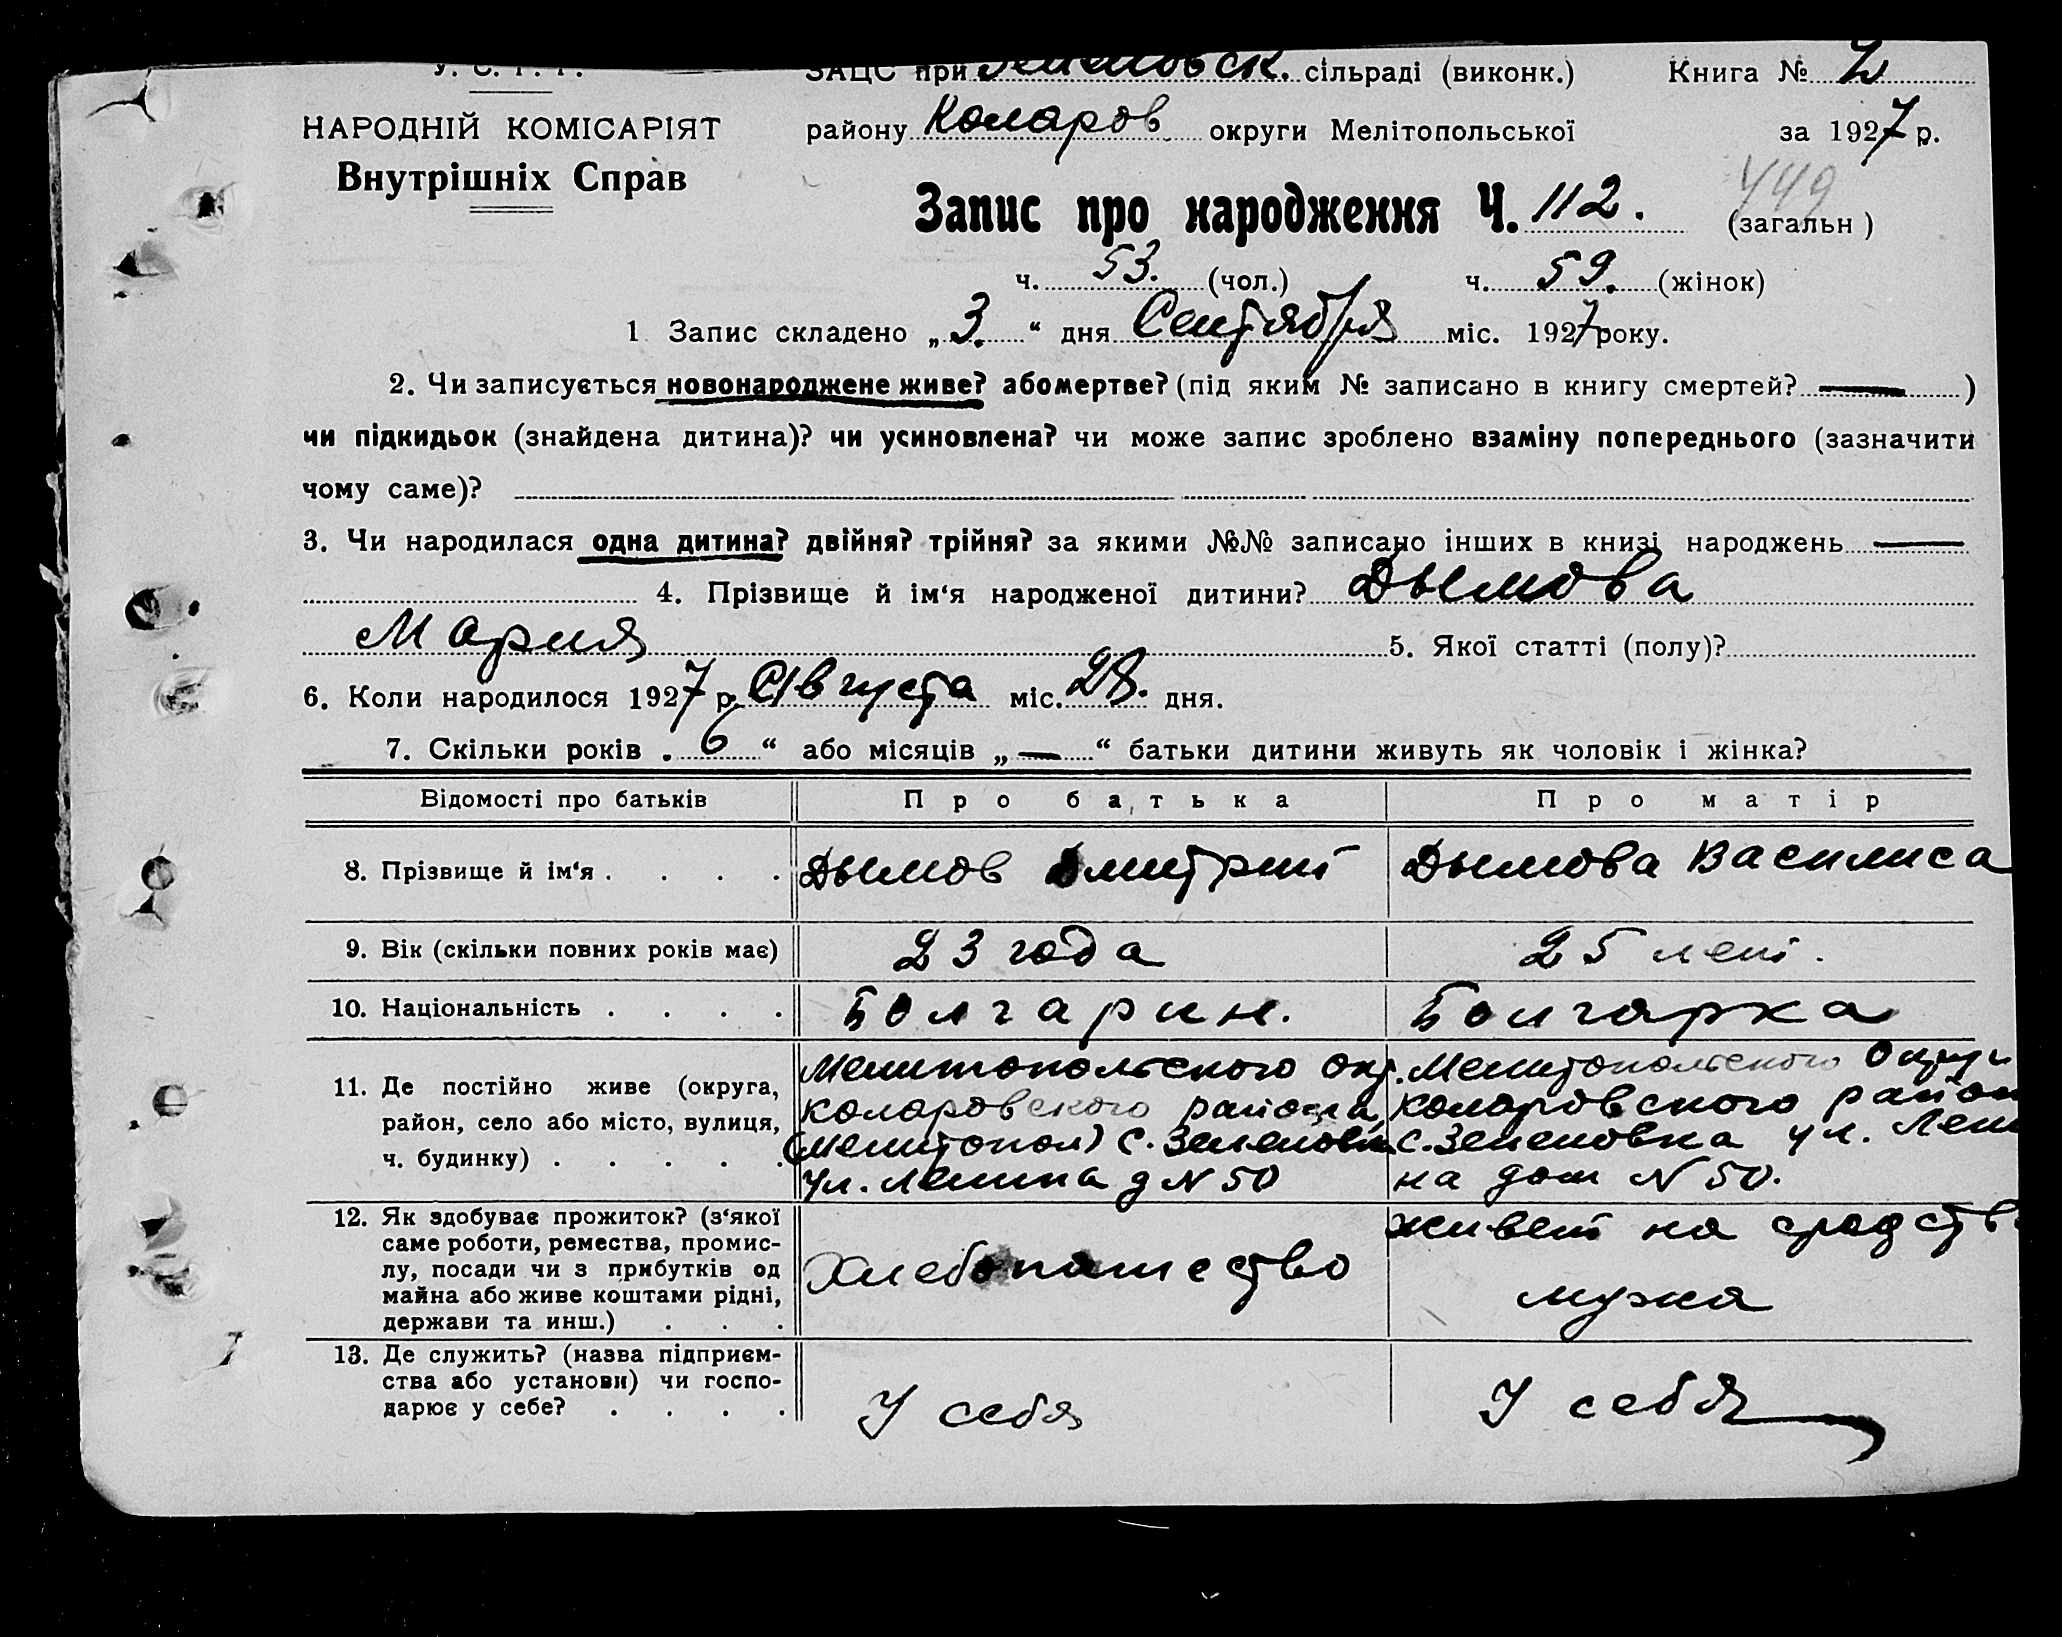 У. С. Р. Р.
ЗАЦС при сільраді (виконк.) Книга № 2
НАРОДНІЙ КОМІСАРІЯТ
району Коларов округи Мелітопольської за 1927 р.
Внутрішніх Справ
449
Запис про народження Ч. 112. (загальн )
ч. 53. (чол.) ч. 59. (жінок)
1 Запис складено „3.“ дня Сентября міс. 1927 року.
2. Чи записується новонароджене живе? або мертве? (під яким № записано в книгу смертей? — )
чи підкидьок (знайдена дитина)? чи усиновлена? чи може запис зроблено взаміну попереднього (зазначити
чому саме)?
3. Чи народилася одна дитина? двійня? трійня? за якими №№ записано інших в книзі народжень —
4. Прізвище й ім‘я народженої дитини? Дымова
Мария 5. Якої статті (полу)?
6. Коли народилося 1927 р. Августа міс. 28. дня.
7. Скільки років „ 6 “ або місяців „ — “ батьки дитини живуть як чоловік і жінка?
Відомості про батьків Про батька Про матір
8. Прізвище й ім‘я . . . . Дымов Дмитрий Дымова Василиса
9. Вік (скільки повних років має) 23 года 25 лет.
10. Національність . . . . Болгарин. Болгарка
11. Де постійно живе (округа, Мелитопольского окр. Мелитопольского Округ
район, село або місто, вулиця, Коларовского района Коларовского район
ч. будинку) . . . . . (Мелитопол) с. Зеленовка с. Зеленовка ул. Лени
ул. Ленина д N 50 на дом N 50.
12. Як здобуває прожиток? (з‘якої живет на средств
саме роботи, ремества, промис- мужа
лу, посади чи з прибутків од Хлебопашество
майна або живе коштами рідні,
держави та инш.) . . .
13. Де служить? (назва підприєм-
ства або установи) чи госпо- У себя У себя
дарює у себе? . . . .